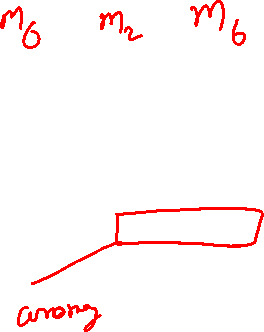 m6 m2 m6
wrong